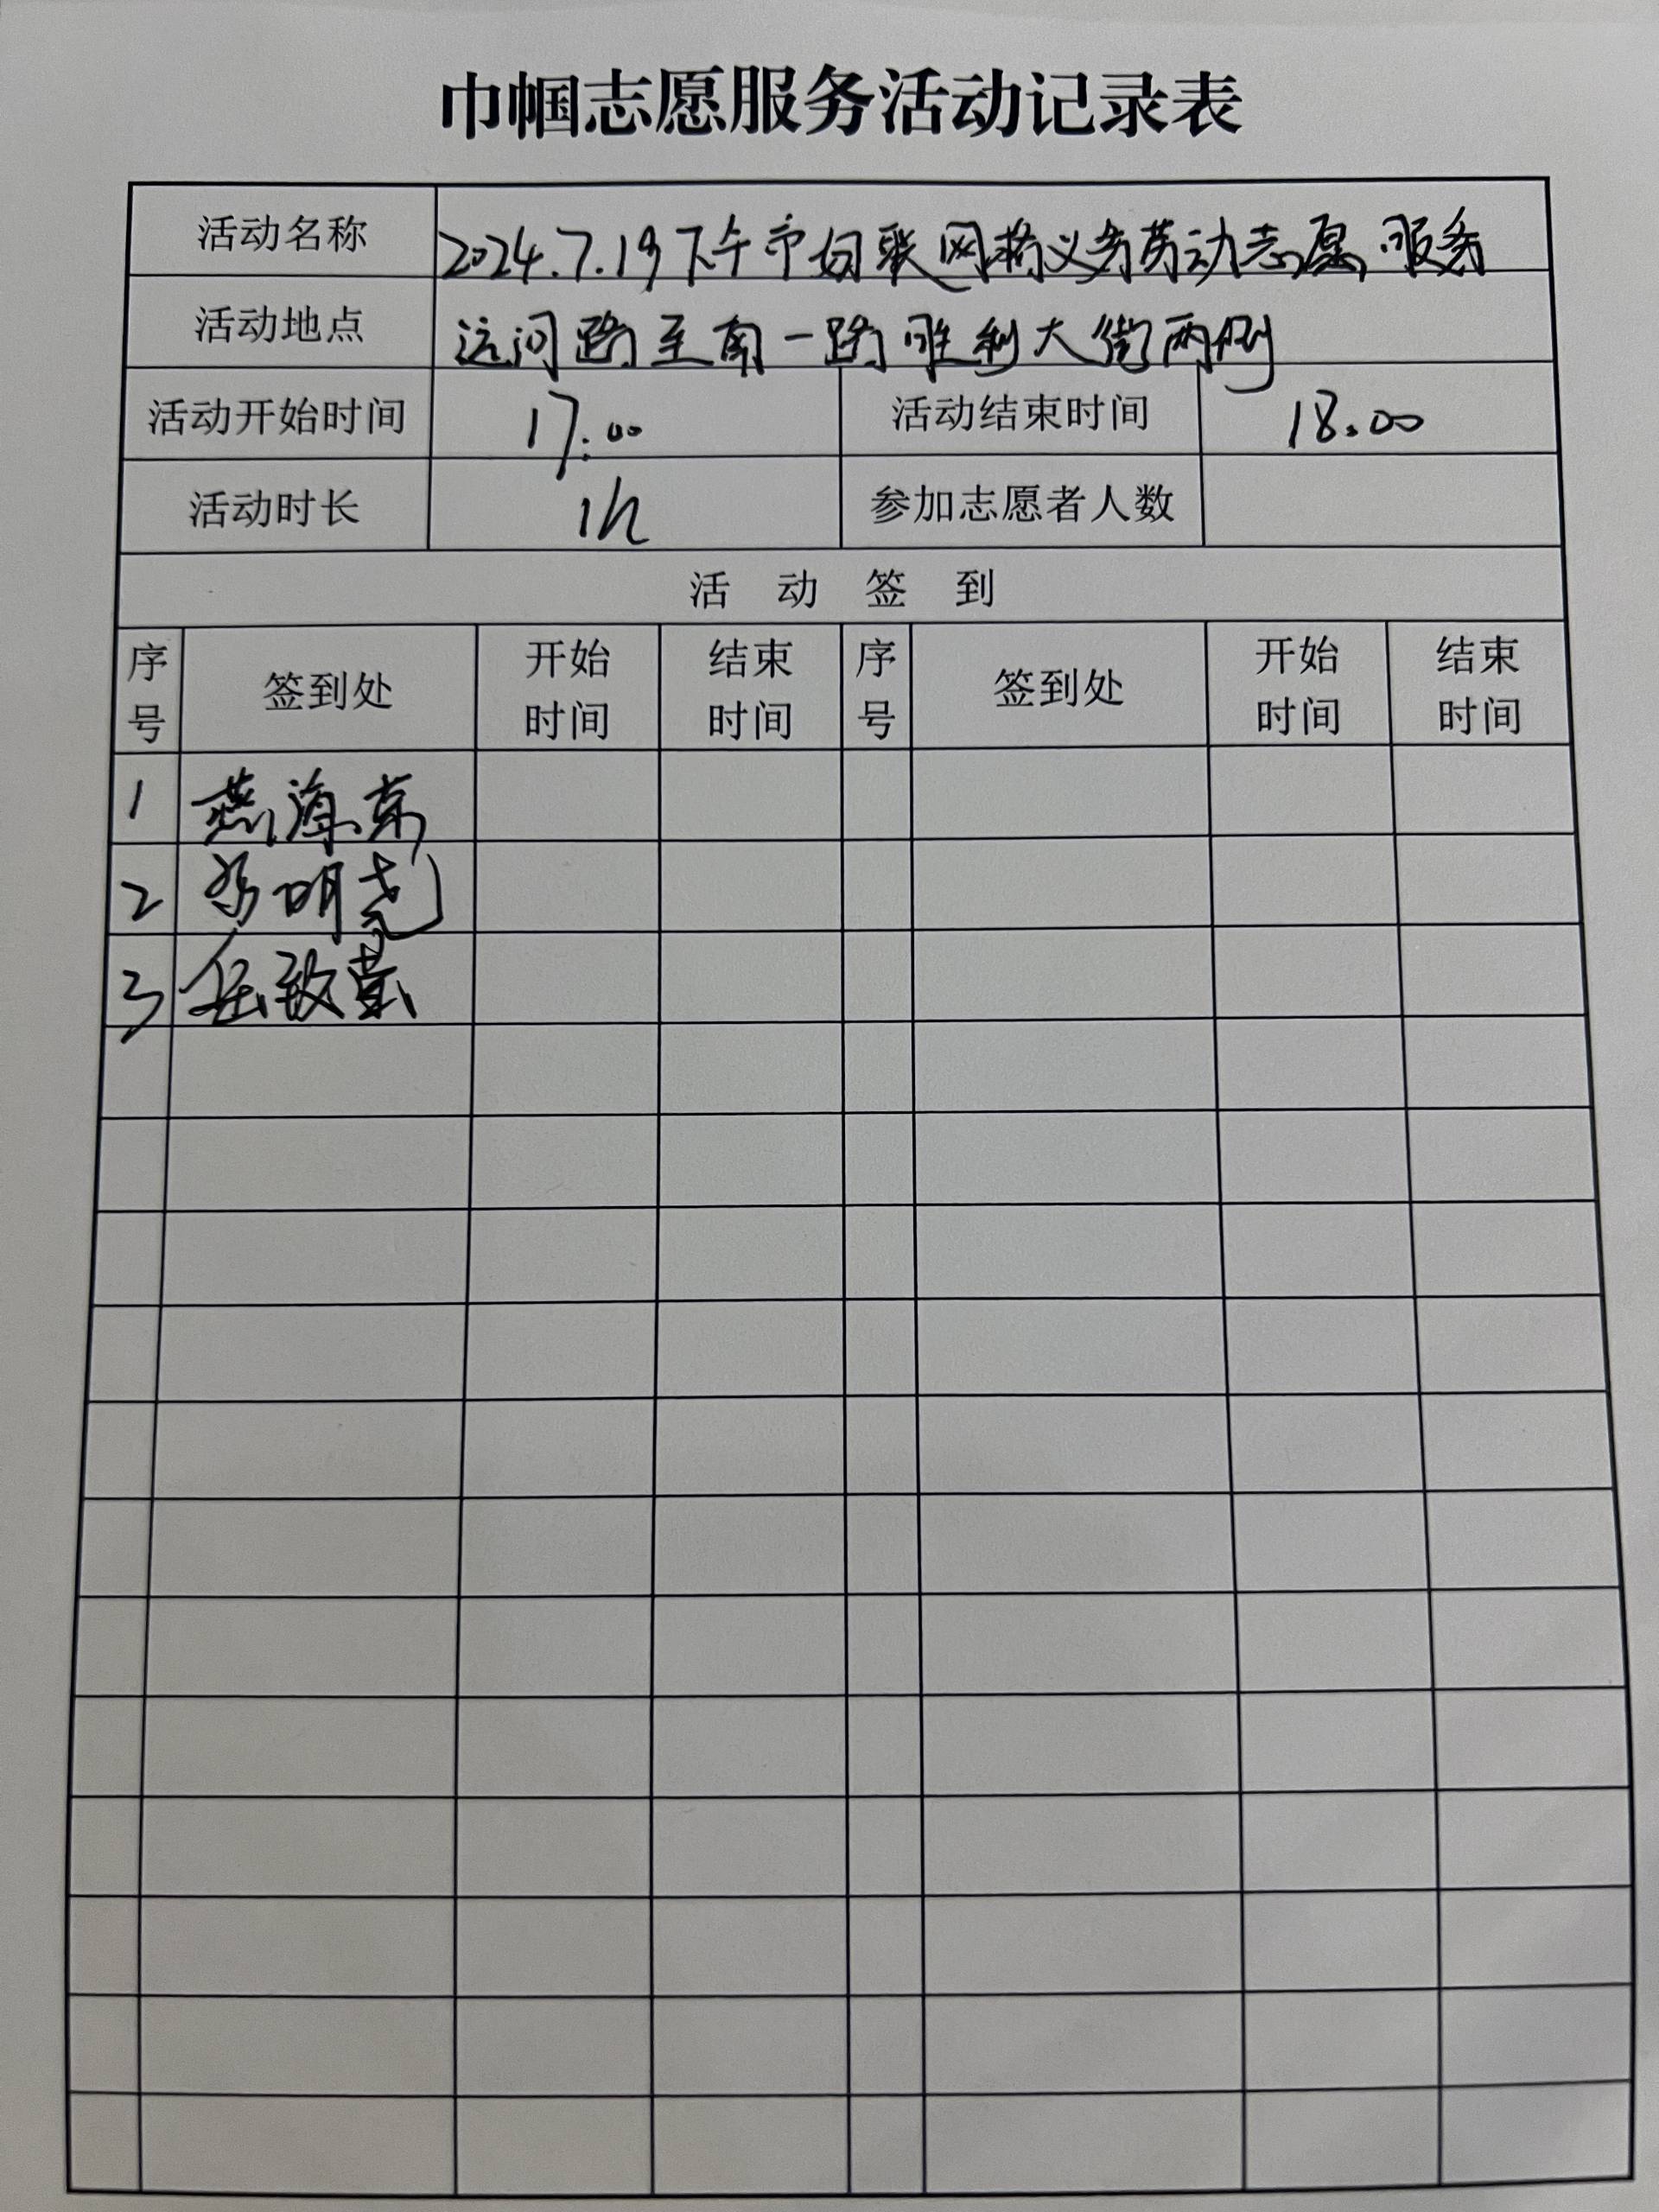 巾帼志愿服务活动记录表
活动名称 2024.7.19下午市妇联网格义务劳动志愿服务
活动地点 运河路至南一路胜利大街两侧
活动开始时间 17:00 活动结束时间 18.00
活动时长 1h 参加志愿者人数
活动签到
序号 签到处 开始时间 结束时间 序号 签到处 开始时间 结束时间
1 燕海荣
2 明尧
3 任致